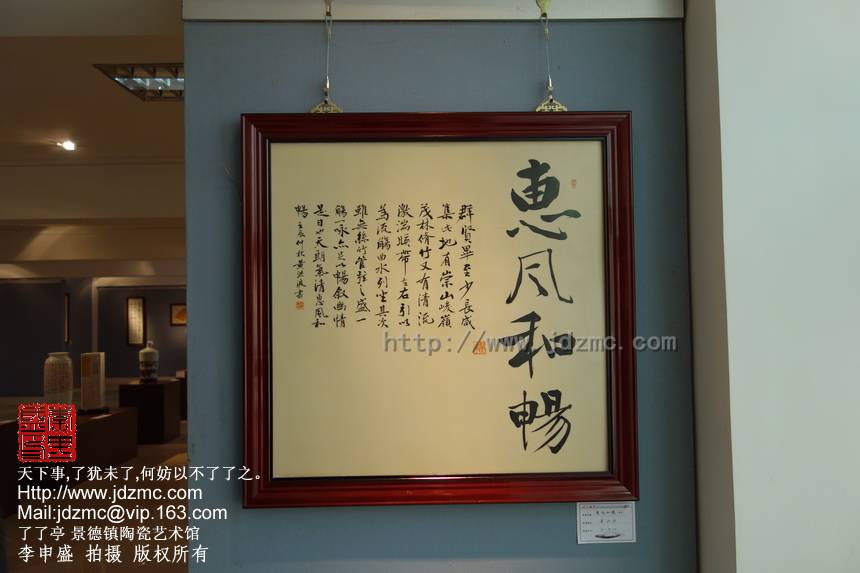 惠风和暢
群賢畢至少長咸
集此地有崇山峻嶺
茂林脩竹又有清流
激湍暎帶左右引以
為流觴曲水列坐其次
雖無絲竹管弦之盛一
觴一咏亦足以暢敘幽情
是日也天朗氣清惠風和
暢 壬辰仲秋黃洪波書
http://www.jdzmc.com
天下事,了犹未了,何妨以不了了之。
Http://www.jdzmc.com
Mail:jdzmc@vip.163.com
了了亭 景德镇陶瓷艺术馆
李申盛 拍摄 版权所有